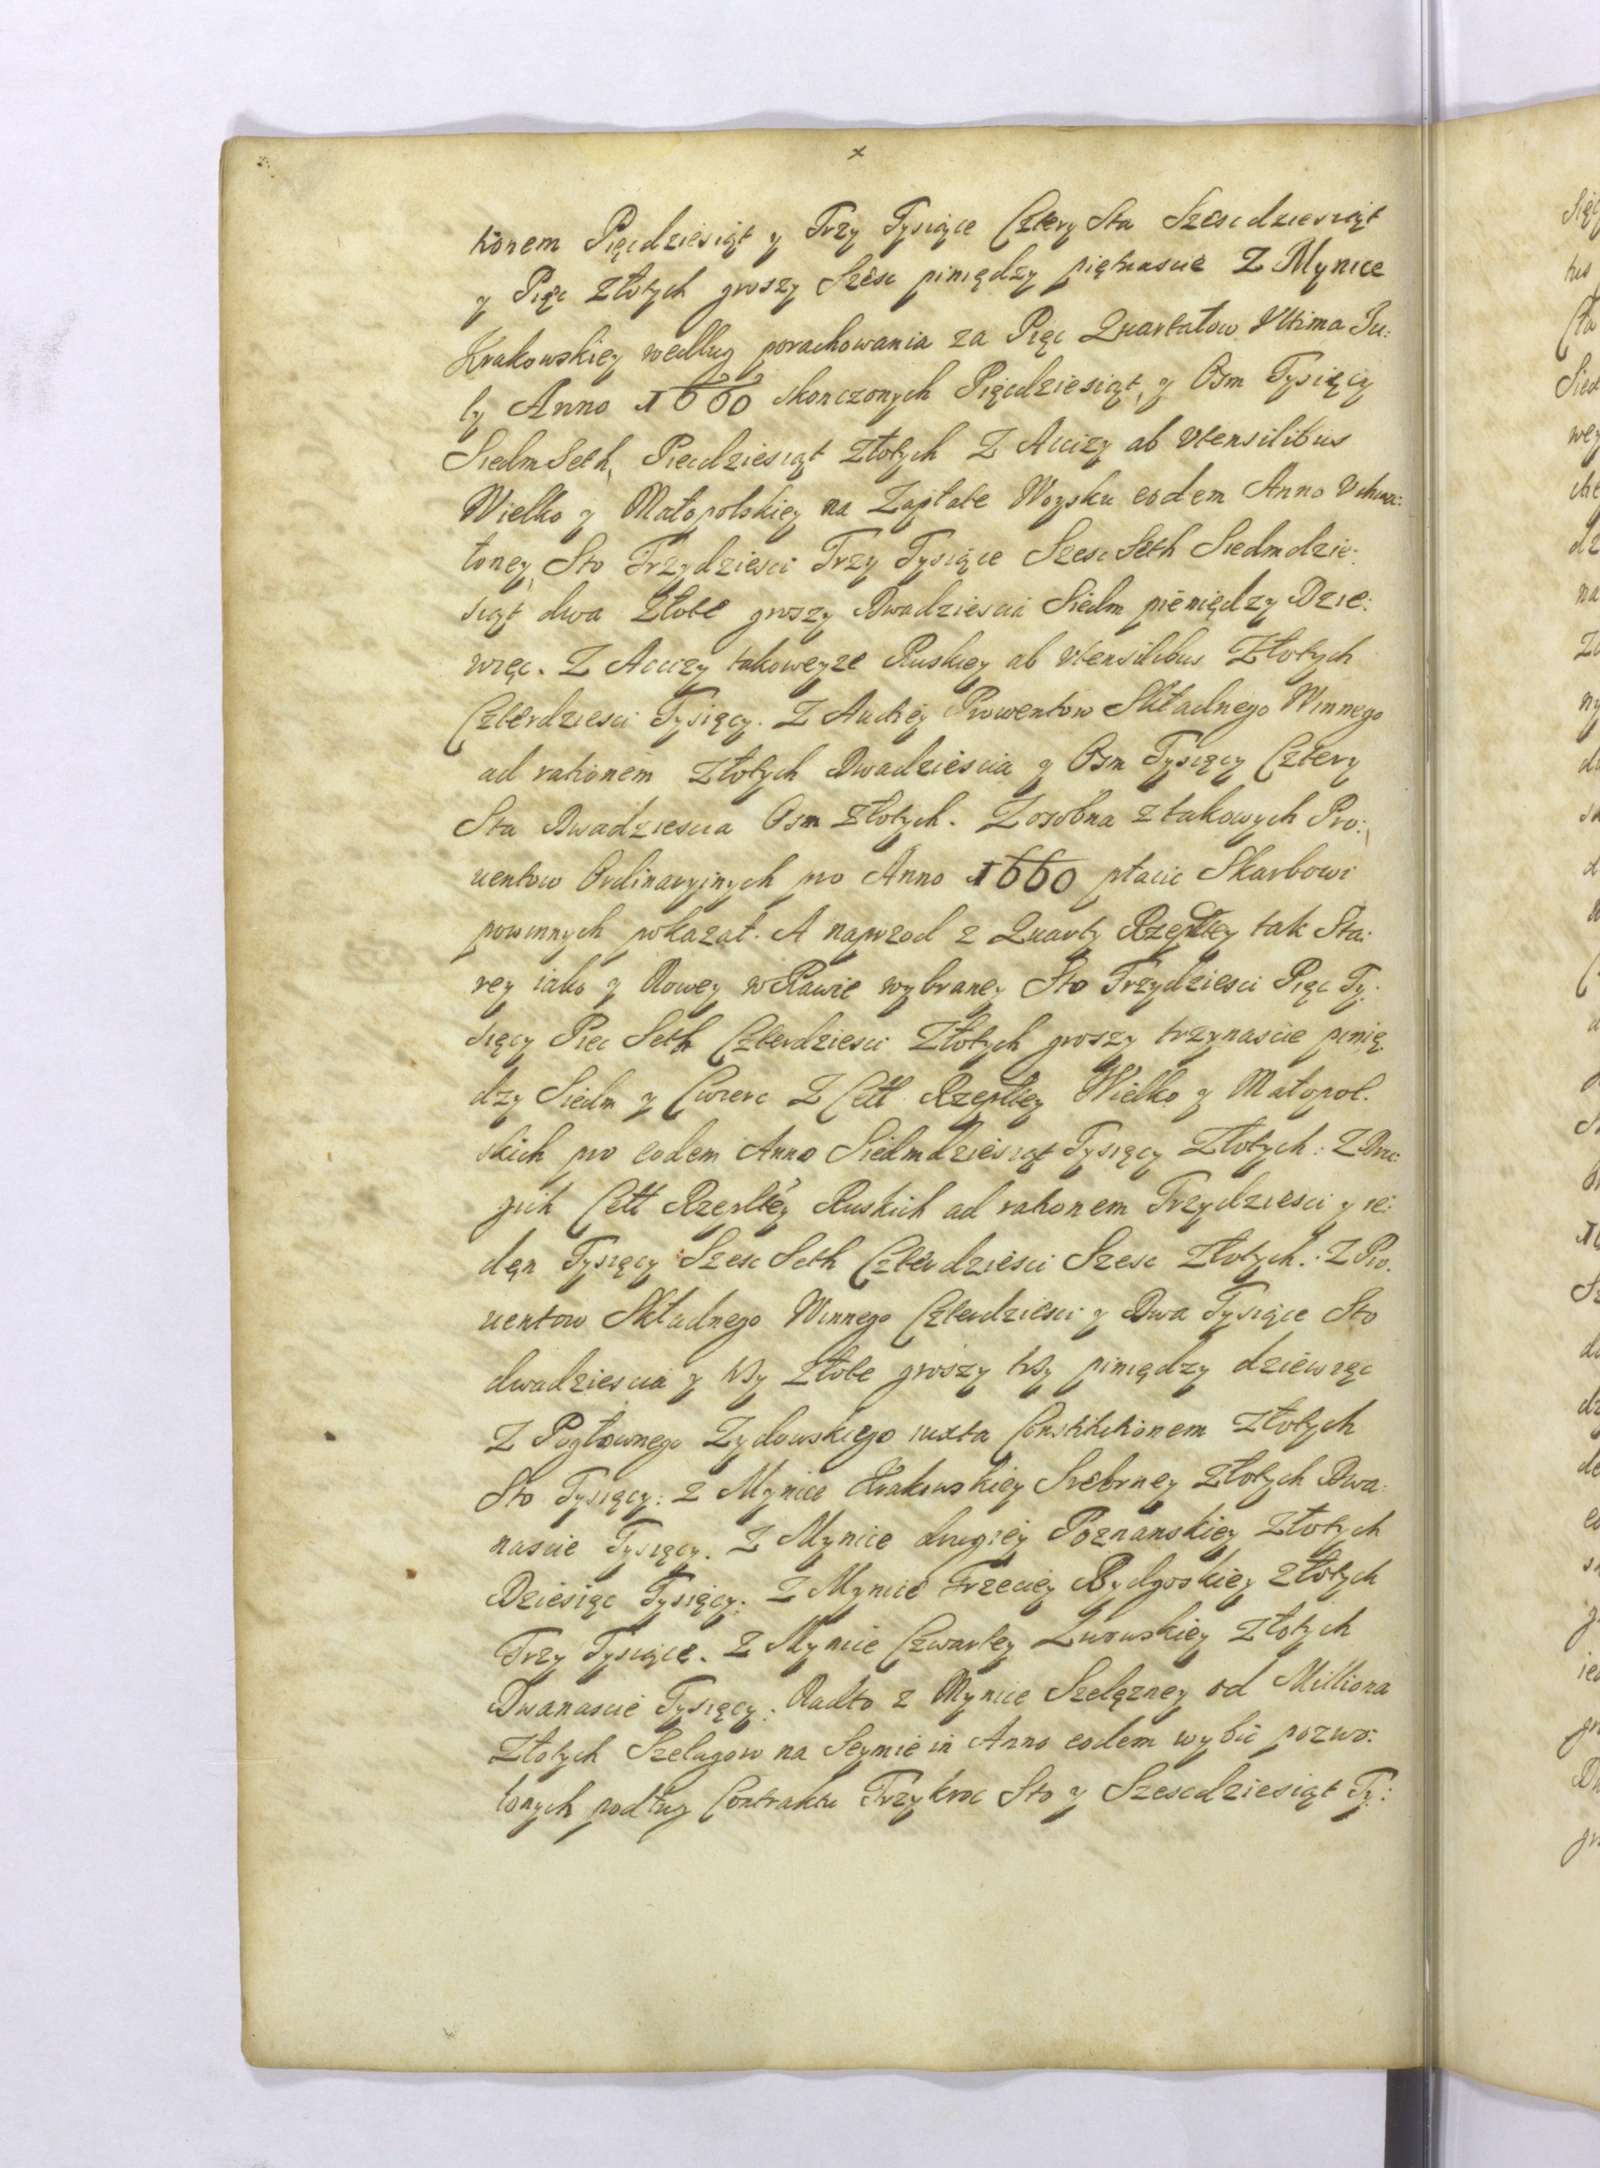 tionem Pięcdziesiąt y Trzy Tysiące Cztery Sta Szescdziesiąt
y Pięc Złotych groszy Szesc piniędzy piętnascie Z Mynice
Krakowskiey według porachowania za Pięc Quartałow Vltima Ju:
ly Anno 1660 skonczonych Pięcdziesiąt y Osm Tysięcy
Siedm Seth Piecdziesiąt Złotych Z Accizy ab Vtensilibus
Wielko y Małopolskiey na Zapłate Woysku eodem Anno Vchwa:
loney Sto Trzydziesci Trzy Tysiące Szesc Seth Siedmdzie:
siąt dwa Złote groszy Dwadziescia Siedm pieniędzy Dzie:
więc. Z Accizy takoweyze Ruskiey ab Vtensilibus Złotych
Czterdziesci Tysięcy. Z Aukcey Prowentow Składnego Winnego
ad rationem Złotych Dwadziescia y Osm Tysięcy Cztery
Sta Dwadziescia Osm Złotych. Z osobna z takowych Pro:
uentow Ordinaryinych pro Anno 1660 płacic Skarbowi
powinnych pokazał. A naprzod z Quarty Rzeptey tak Sta:
rey iako y Nowey w Rawie wybraney Sto Trzydziesci Pięc Ty:
sięcy Piec Seth Czterdziesci Złotych groszy trzynascie pinię
dzy Siedm y Cwierc Z Cełł Rzeptey Wielko y Małopol.
skich pro eodem Anno Siedmdziesiąt Tysięcy Złotych: Z Dru:
gich Cełł Rzeptey Ruskich ad rationem Trzydziesci y ie:
dęn Tysięcy Szesc Seth Czterdziesci Szesc Złotych: Z Pro.
uentow Składnego Winnego Czterdziesci y Dwa Tysiące Sto
dwadziescia y trzy Złote groszy trzy piniędzy dziewięc
Z Pogłownego Zydowskiego iuxta Constitutionem Złotych
Sto Tysięcy: z Mynice Krakowskiey Srebrney Złotych Dwa
nascie Tysięcy. Z Mynice drugiey Poznanskiey Złotych
Dziesięc Tysięcy: Z Mynice Trzeciey Bydgoskiey Złotych
Trzy Tysiące. Z Mynice Czwartey Lwowskiey Złotych
Dwanascie Tysięcy: Nadto z Mynice Szelęzney od Milliona
Złotych Szelągow na Seymie in Anno eodem wybic pozwo:
lonych podług Contraktu Trzykroc Sto y Szescdziesiąt Ty: